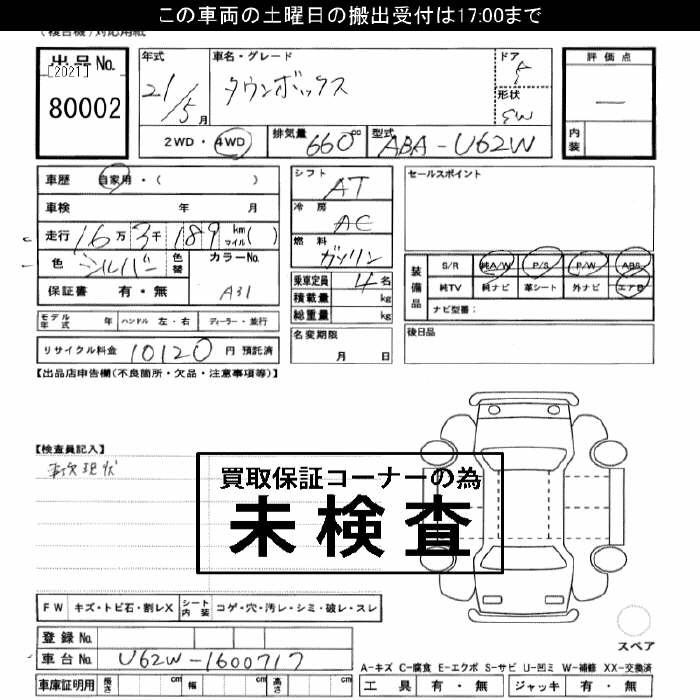 この車両の土曜日の搬出受付は17:00まで
(複合機)対応用紙
出品No.
[2021]
80002
年式
21/5月
車名・グレード
タウンボックス
ドア
5
形状
SW
評価点
―
内装
2WD・4WD
排気量
660cc
型式
ABA-U62W
車歴
自家用・( )
車検 年 月
走行 16万3千189 km マイル( )
色 シルバー 色替
カラーNo.
A31
保証書 有・無
シフト
AT
冷房
AC
燃料
ガソリン
乗車定員 4名
積載量 kg
総重量 kg
名変期限
月 日
セールスポイント
装備品
S/R 純A/W P/S P/W ABS
純TV 純ナビ 革シート 外ナビ エアB
ナビ型番:
後日品
モデル年式 年 ハンドル 左・右 ディーラー・並行
リサイクル料金 10120 円 預託済
【出品店申告欄(不良箇所・欠品・注意事項等)】
【検査員記入】
事故現状
買取保証コーナーの為
未検査
FW キズ・トビ石・割レX シート内装 コゲ・穴・汚レ・シミ・破レ・スレ
登録No.
車台No. U62W-1600717
車庫証明用 長さ cm 幅 cm 高さ cm
スペア
A-キズ C-腐食 E-エクボ S-サビ U-凹ミ W-補修 XX-交換済
工具 有・無 ジャッキ 有・無